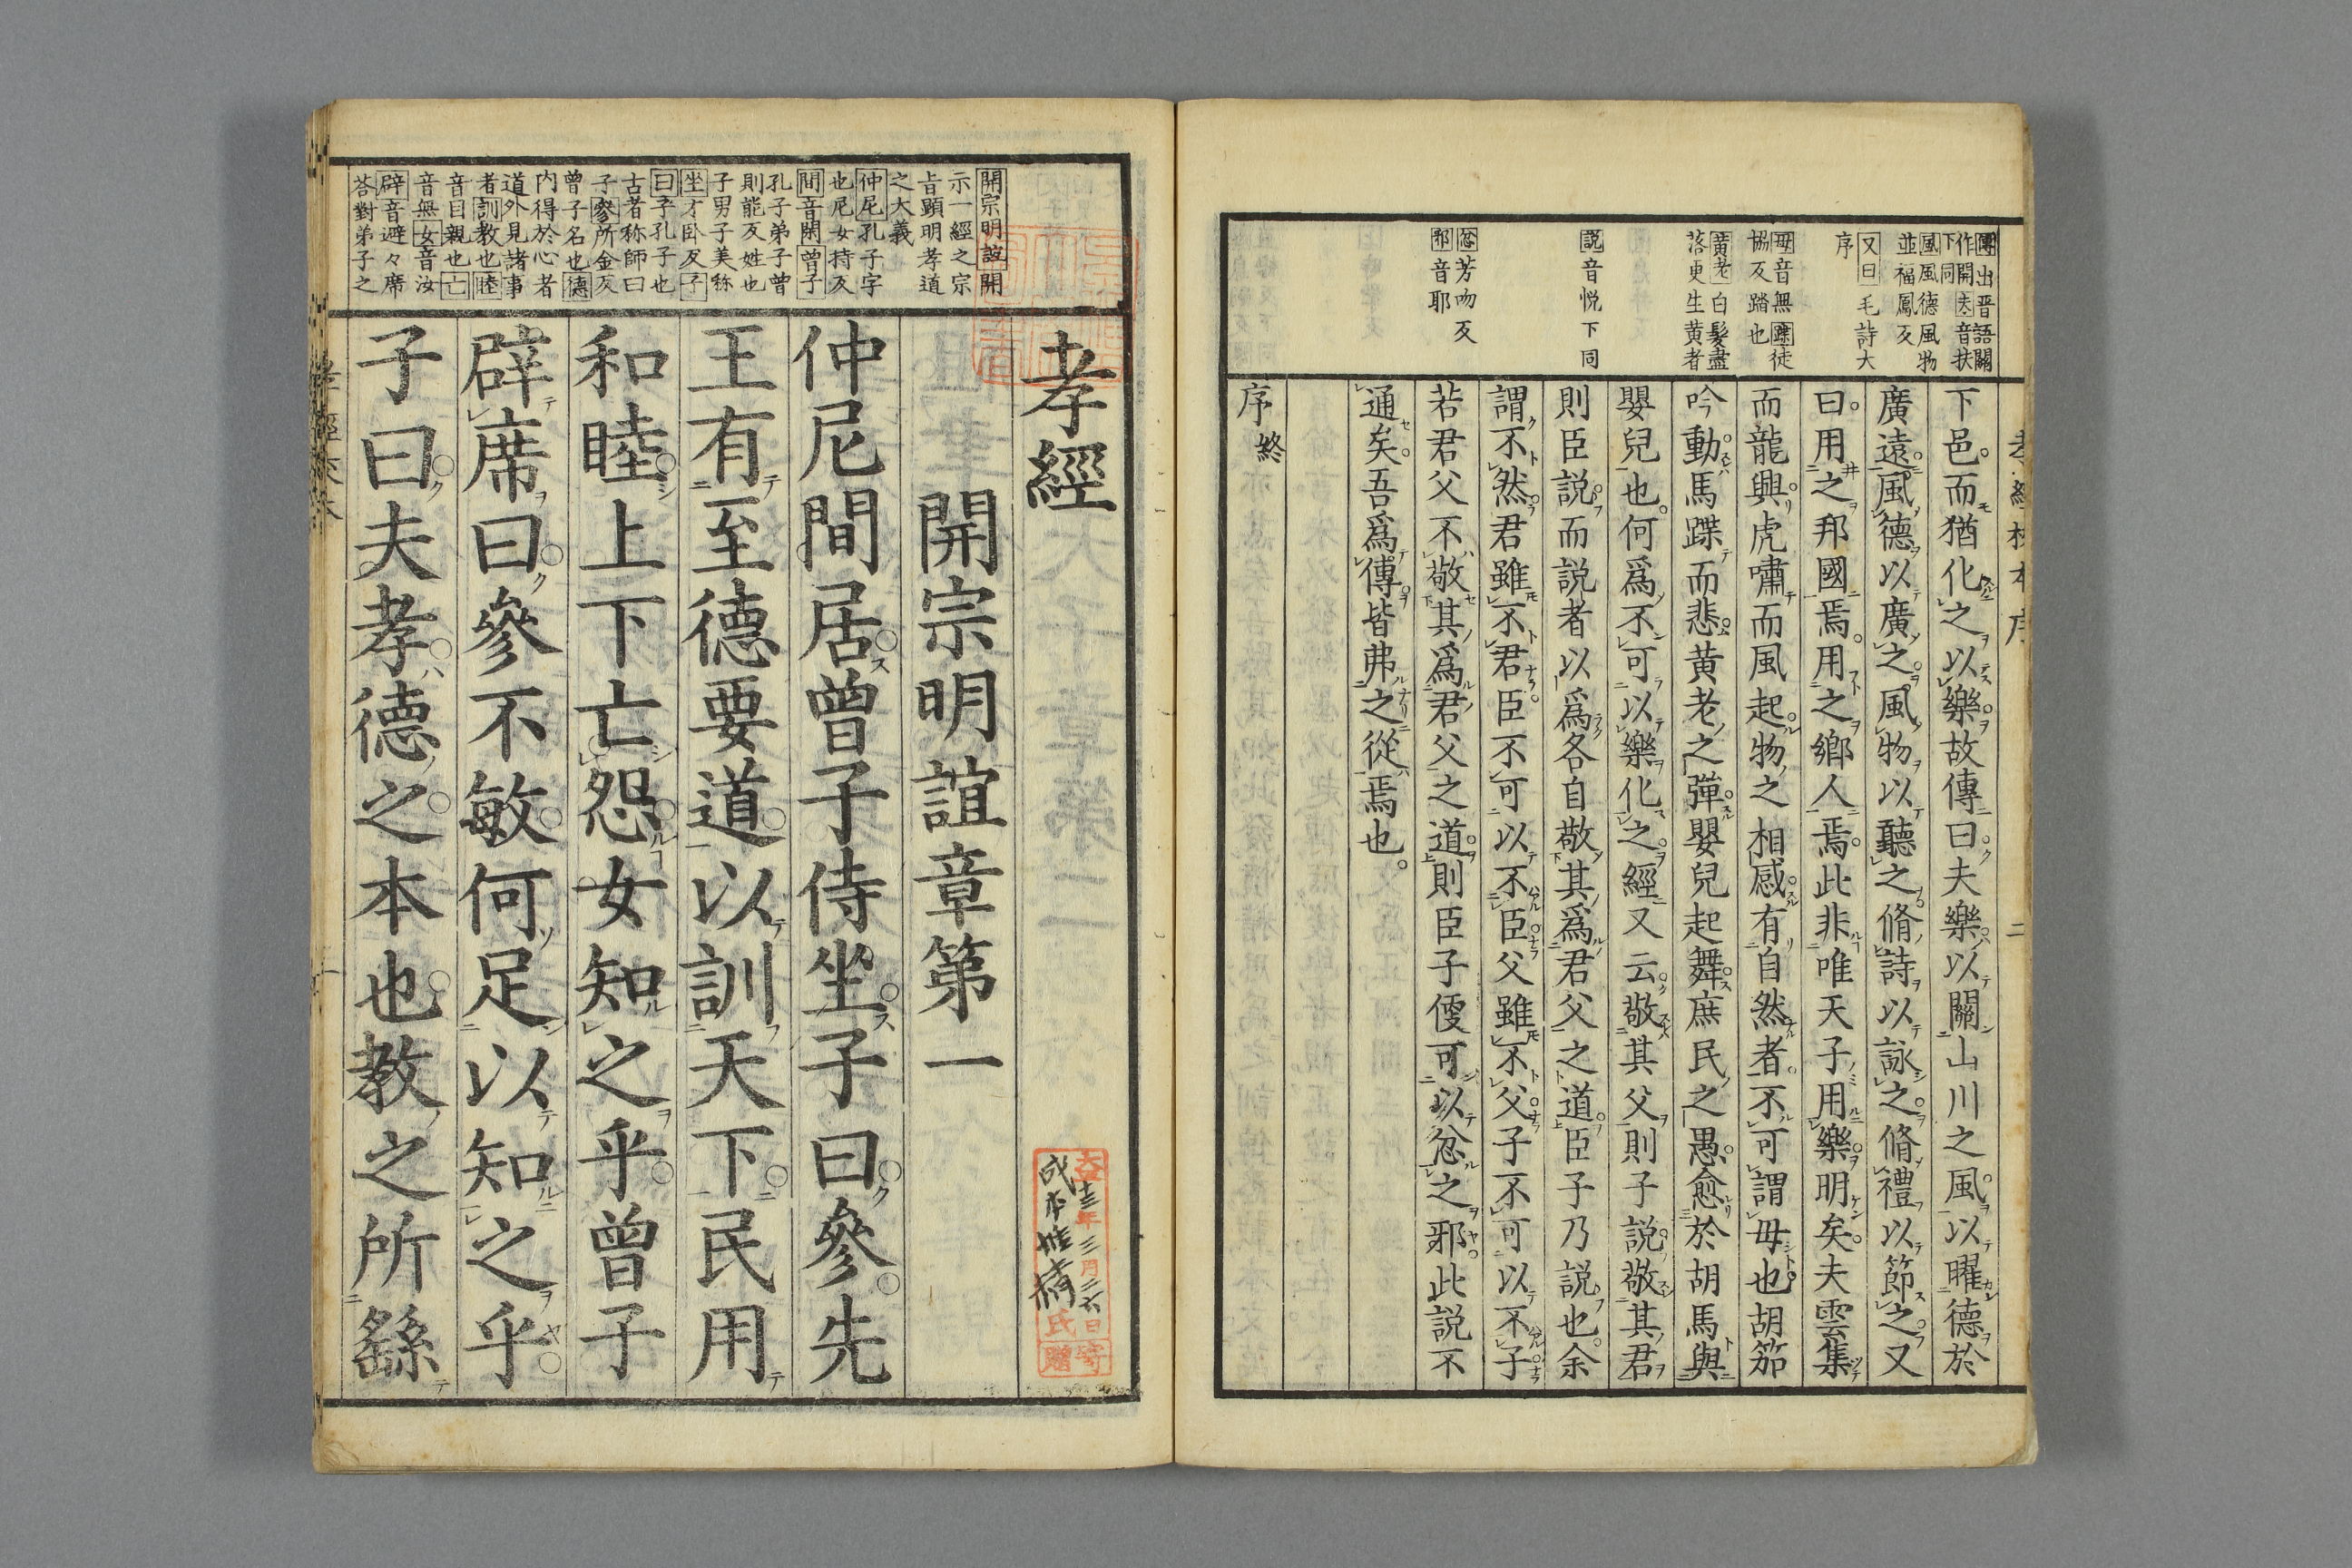 傳出晋語關
作開夫音扶
下同
風風德風物
並福鳳反
又曰毛詩大
序
毋音無蹹徒
協反踏也
黄老白髪盡
落更生黄者
説音悦下同
忽芳吻反
邪音耶
下邑而猶化之以樂故傳曰夫樂以關山川之風以曜德於
廣遠風德以廣之風物以聽之脩詩以詠之脩禮以節之又
曰用之邦國焉用之鄉人焉此非唯天子用樂明矣夫雲集
而龍興虎嘯而風起物之相感有自然者不可謂毋也胡笳
吟動馬蹀而悲黄老之彈嬰兒起舞庶民之愚愈於胡馬與
嬰兒也何爲不可以樂化之經又云敬其父則子説敬其君
則臣説而説者以爲各自敬其爲君父之道臣子乃説也余
謂不然君雖不君臣不可以不臣父雖不父子不可以不子
若君父不敬其爲君父之道則臣子便可以忿之邪此説不
通矣吾爲傳皆弗之從焉也
序終
開宗明誼開
示一經之宗
旨顯明孝道
之大義
仲尼孔子字
也尼女持反
間音閑曾子
孔子弟子曾
則能反姓也
子男子美称
坐才卧反子
曰子孔子也
古者称師曰
子參所金反
曾子名也德
内得於心者
道外見諸事
者訓教也睦
音目親也亡
音無女音汝
辟音避々席
荅對弟子之
孝經
開宗明誼章第一
仲尼間居曾子侍坐子曰參先
王有至德要道以訓天下民用
和睦上下亡怨女知之乎曾子
辟席曰參不敏何足以知之乎
子曰夫孝德之本也教之所繇
年三月二六日寄
氏贈